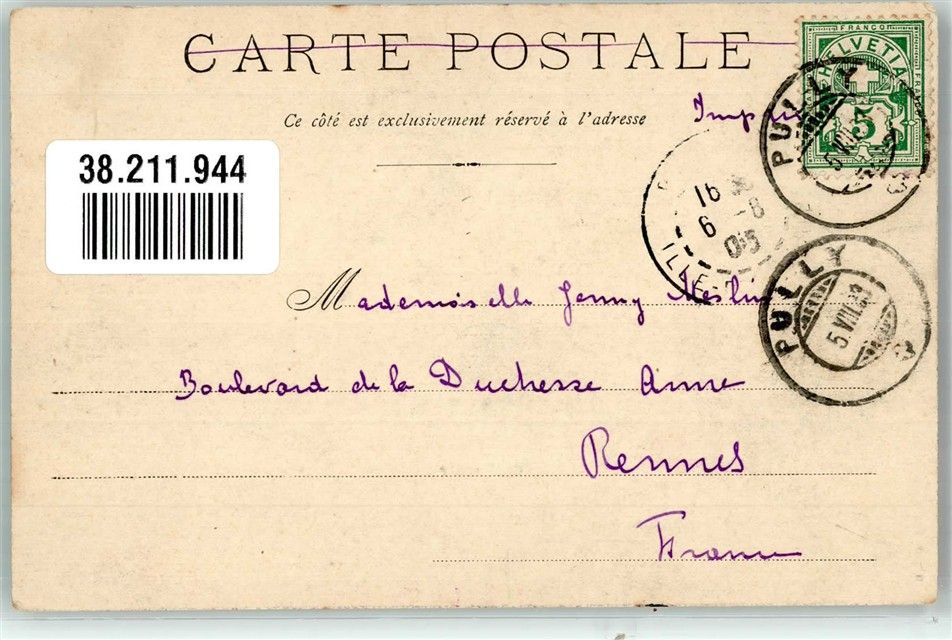 CARTE POSTALE
FRANCO
HELVETIA
5
PULLY
Ce côté est exclusivement réservé à l'adresse
38.211.944
16
6 -8
05
ILLE
PULLY
5 VIII
Mademoiselle Jenny
Boulevard de la Duchesse Anne
Rennes
France